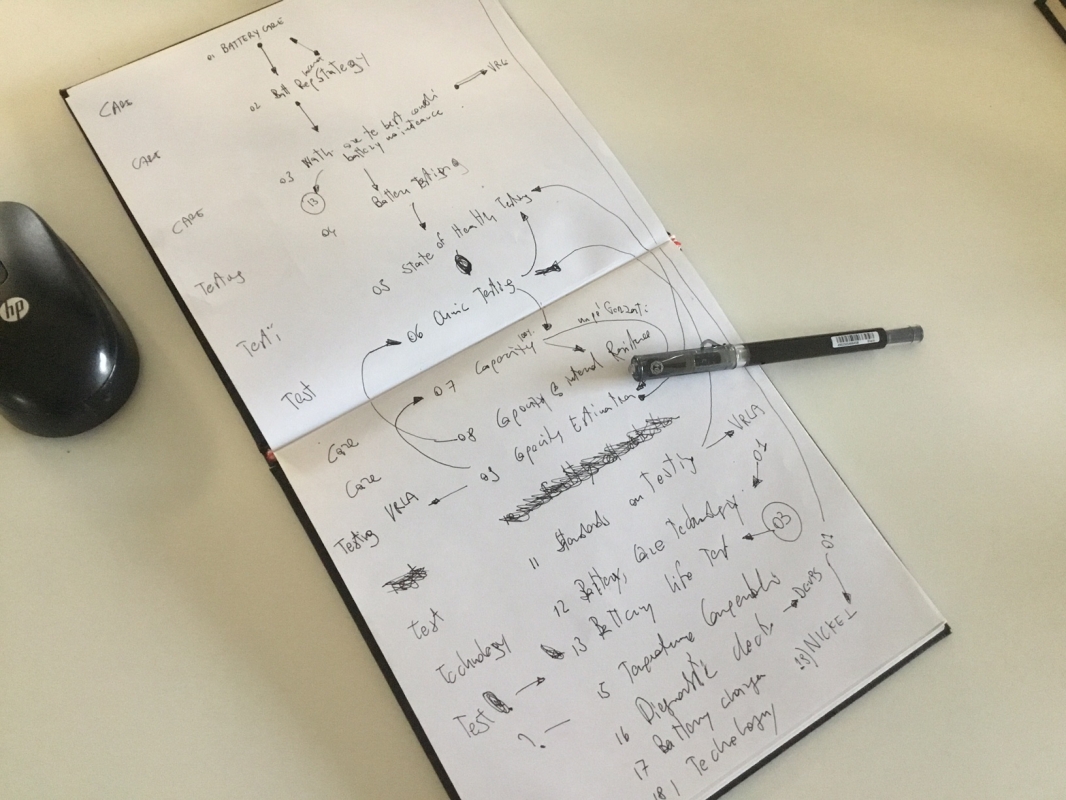 01 BATTERY CARE
CARE 02 Batt Rep Strategy
VRL
CARE 03 to best
battery
13
CARE 04 Battery Testing
Testing 05 State of Health Testing
Testi 06 Ohmic Testing
Test 07 Capacity
Care 08 Capacity & internal Resistance
Care 09 Capacity Estimation
VRLA
VRLA
Testing 11 Standards on Testing
01
Test 12 Battery, Care Technology
03
Technology 13 Battery life Test
Test 15 Temperature
?
16 Diagnostic
01
NICKEL
17 Battery charger
18 Technology
hp